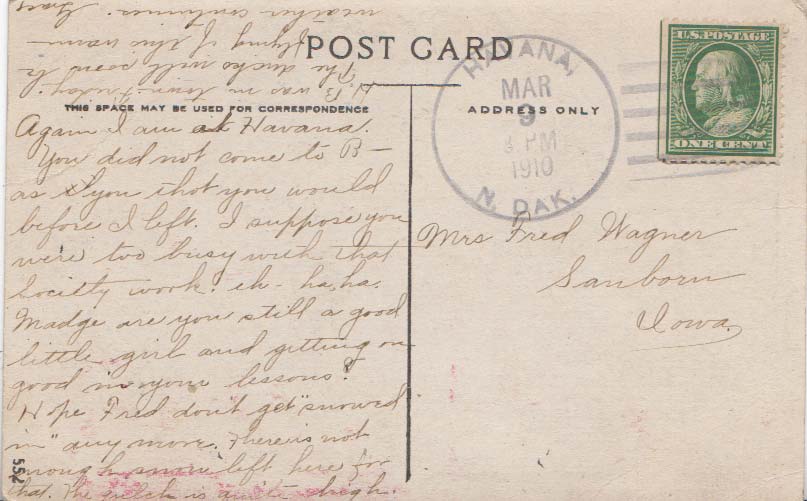 POST CARD
THIS SPACE MAY BE USED FOR CORRESPONDENCE
ADDRESS ONLY
HAVANA,
MAR
9
PM
1910
N. DAK.
U.S. POSTAGE
ONE CENT
Again I am at Havana.
You did not come to B—
as you thot you would
before I left. I suppose you
were too busy with that
Society work. eh- ha, ha.
Madge are you still a good
little girl and getting on
good in your lessons?
Hope Fred don't get "snowed
in" any more. There is not
enough snow left here for
that. The gulch is quite high.
B was in town Friday.
The ducks will soon be
flying if this warm
weather continues.
Mrs Fred Wagner
Sanborn
Iowa
552